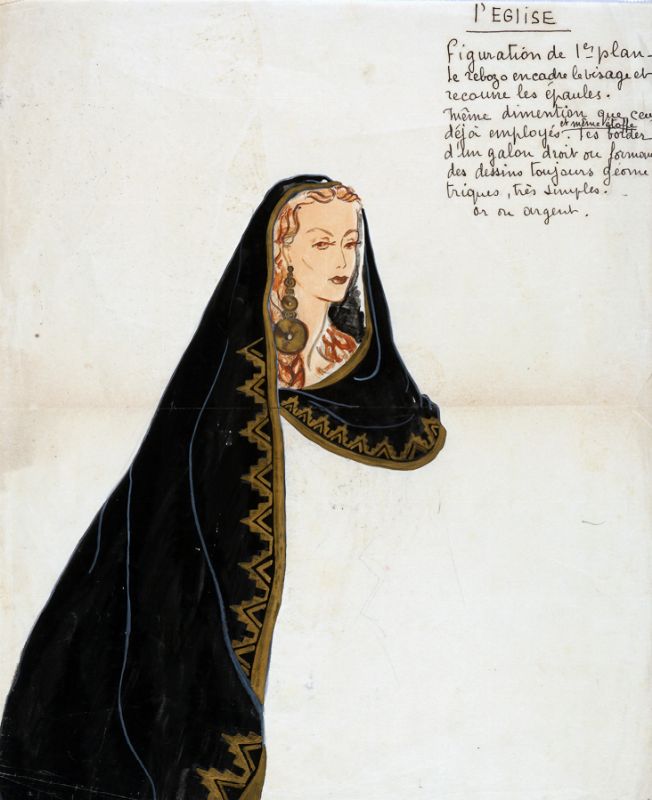 l'EGLISE
Figuration de 1er plan_
le rebozo encadre le visage et
recouvre les épaules.
même dimention que ceu
et même étoffe
déjà employés. Les border
d'un galon droit ou forman
des dessins toujours géomé
triques, très simples.
or ou argent.